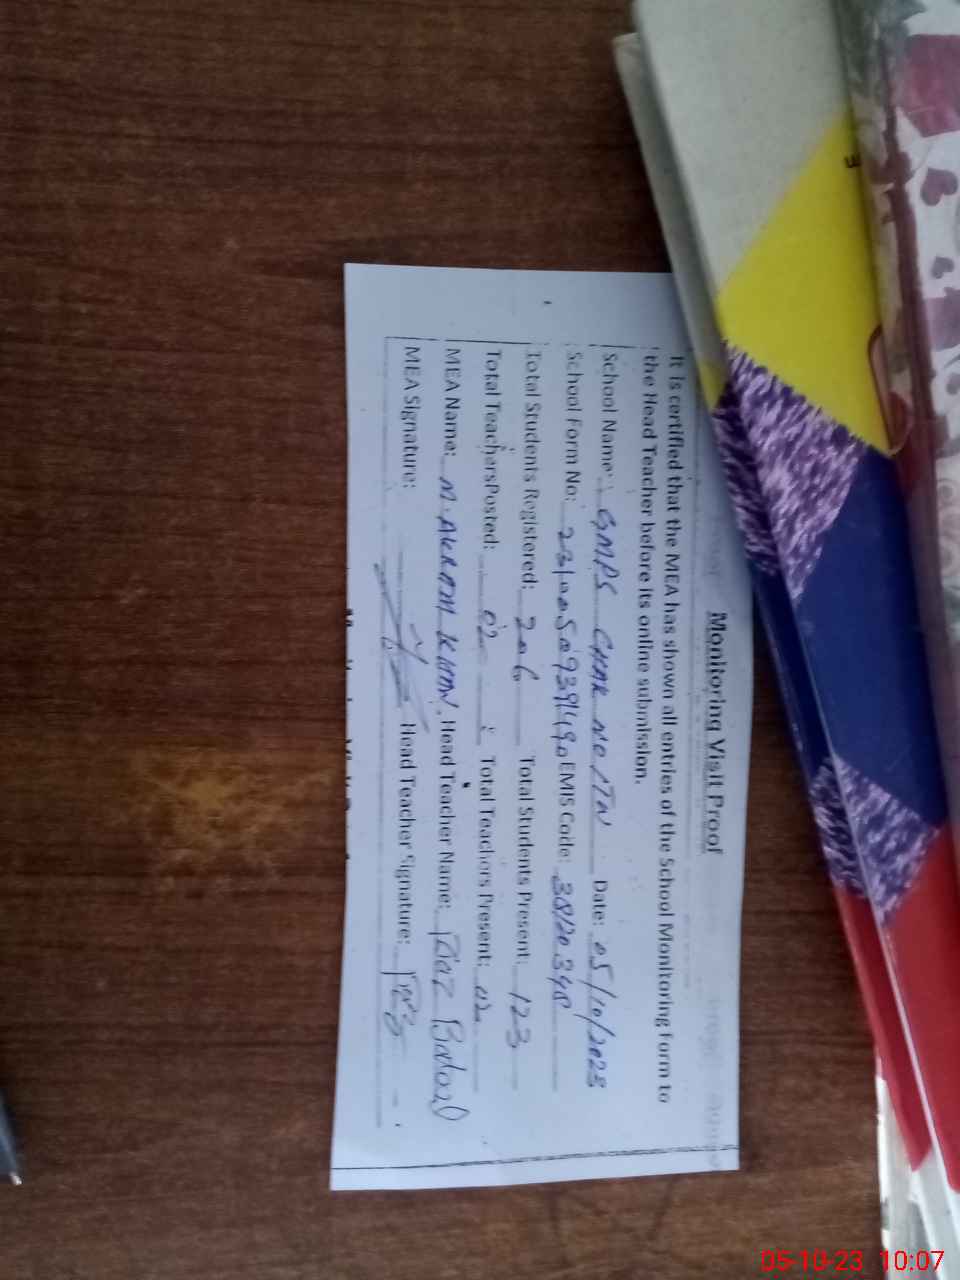 Monitoring Visit Proof
It is certified that the MEA has shown all entries of the School Monitoring Form to
the Head Teacher before its online submission.
School Name: GMPS CHAK NO 17N Date: 05/10/2023
School Form No: EMIS Code: 38120348
Total Students Registered: 206 Total Students Present: 123
Total TeachersPosted: 02 Total Teachers Present: 02
MEA Name: M. AKRAM KHAN. Head Teacher Name:
MEA Signature: Head Teacher Signature:
05-10-23 10:07